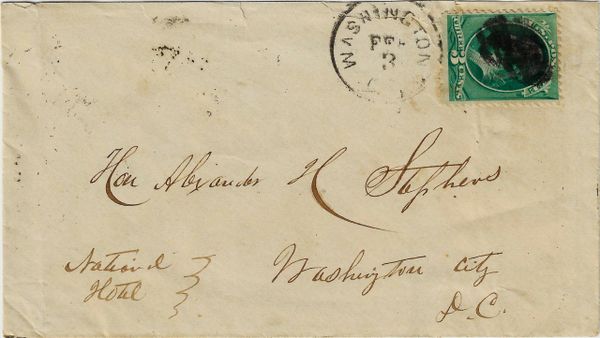 WASHINGTON
FEB
3
3 CENTS
Hon Alexander H Stephens
National
Hotel
Washington City
D.C.